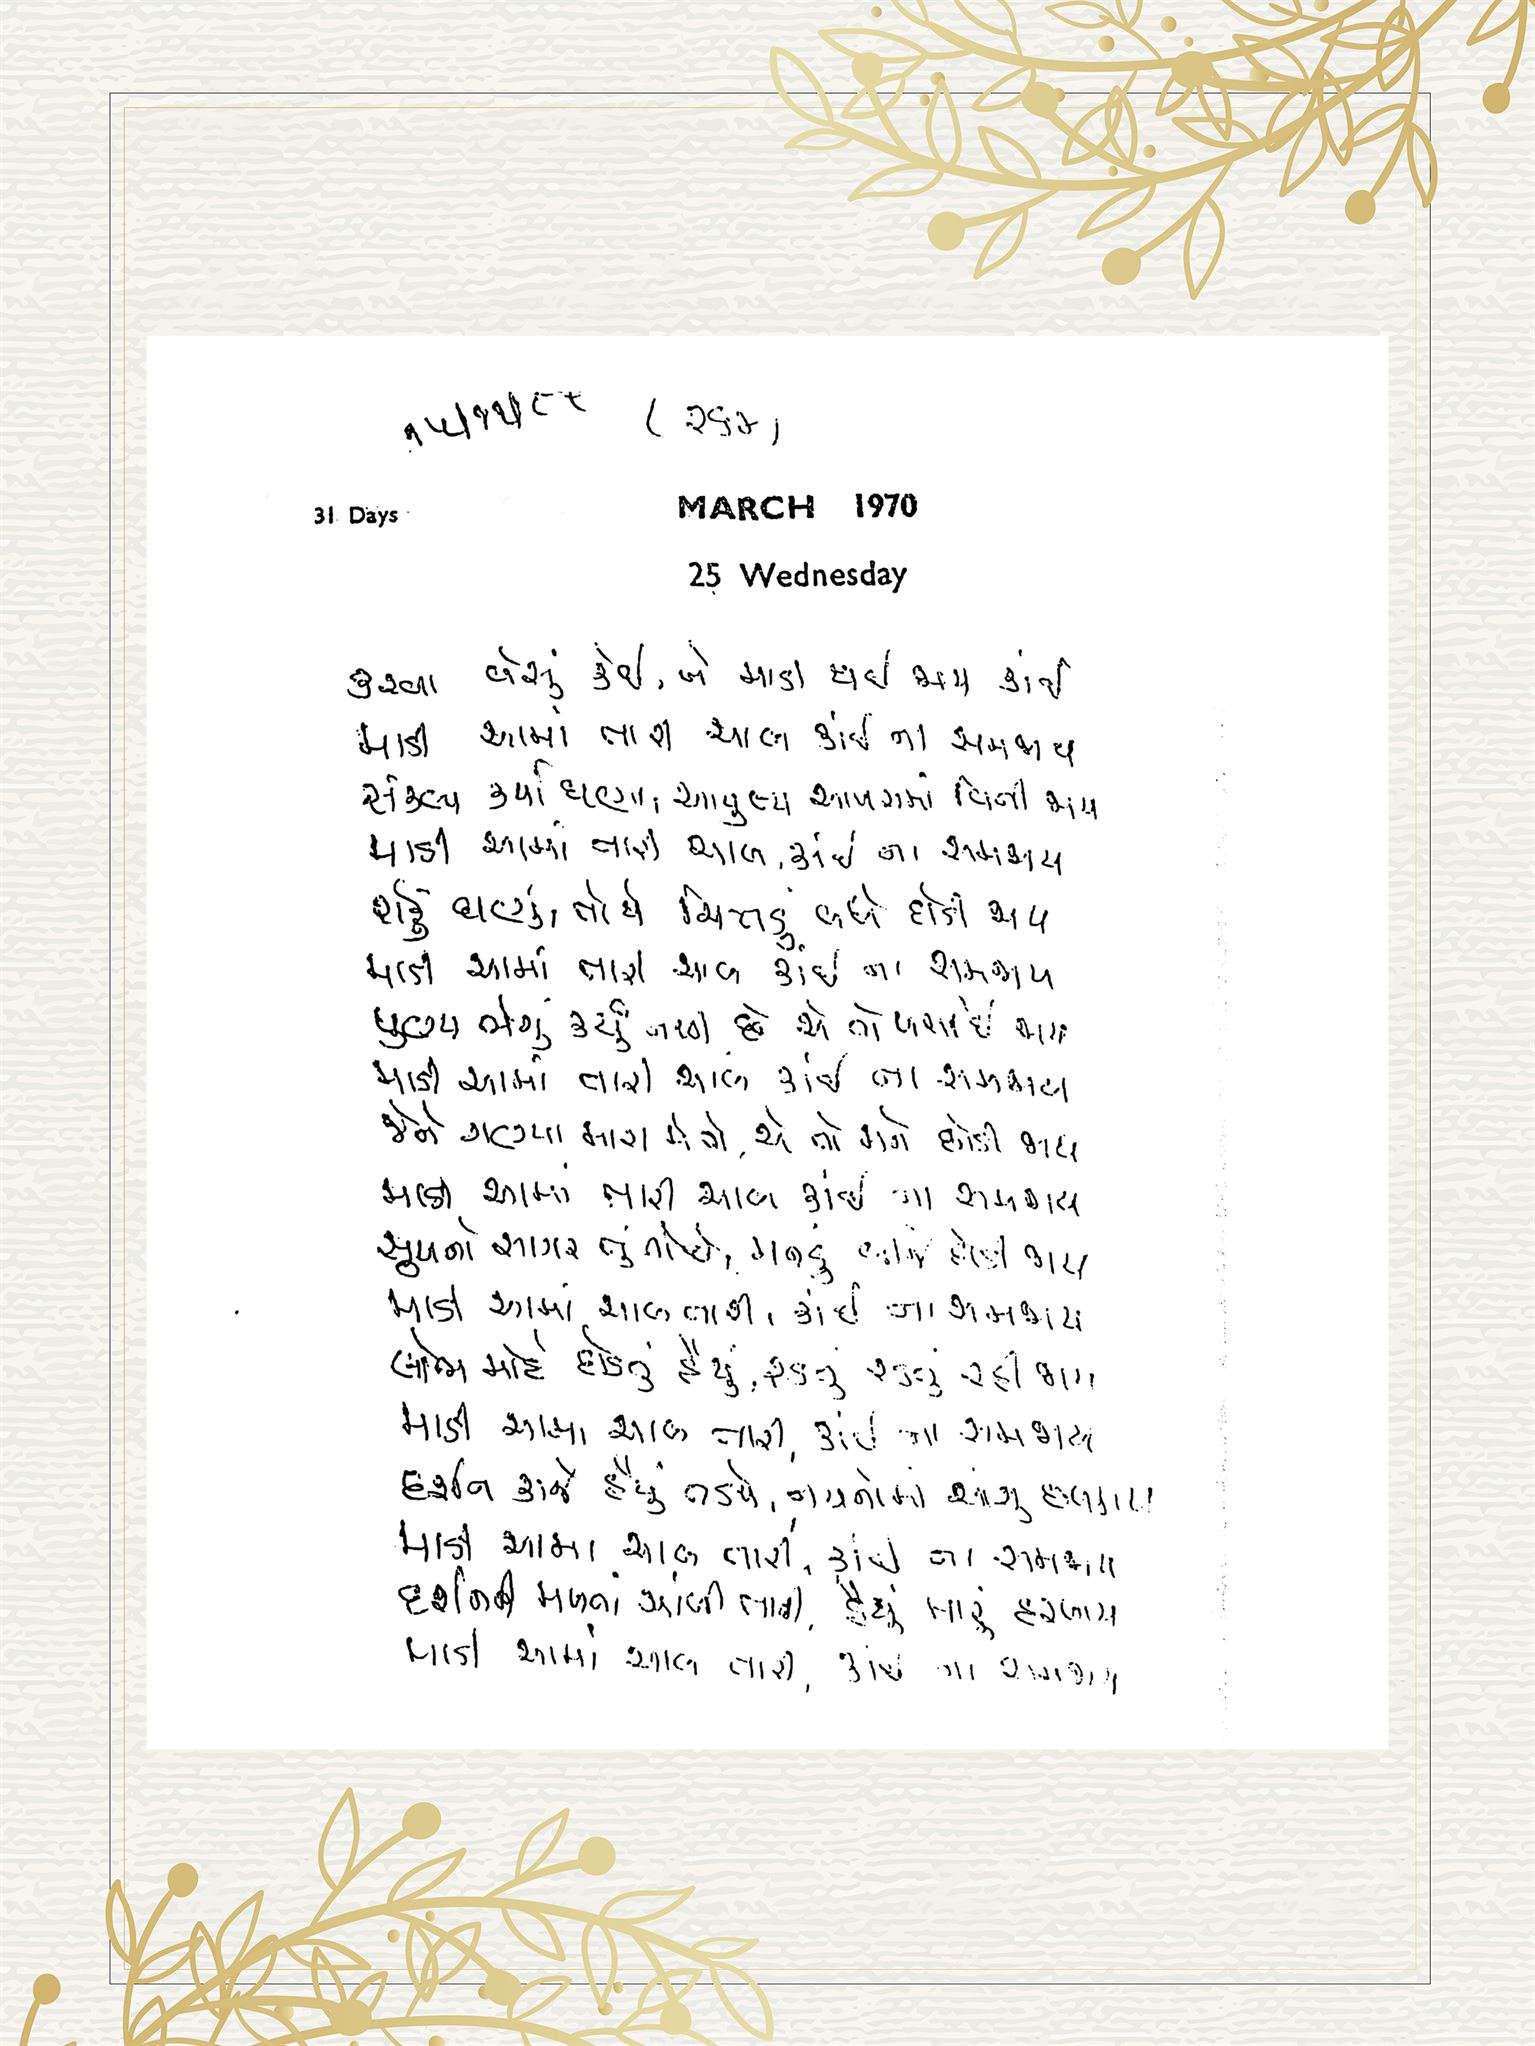 ૧૫/૧૧/૮૯ (૨૬૪)
31 Days
MARCH 1970
25 Wednesday
કરવા બેસું કંઈ, ને માડી થઈ જાય કાંઈ
માડી આમાં તારી ચાલ કાંઈ ના સમજાય
સંકલ્પ કર્યા ઘણા, આયુષ્ય આળસમાં વિતી જાય
માડી આમાં તારી ચાલ, કાંઈ ના સમજાય
રોકું ઘણું, તોયે ચિત્તડું બધે દોડી જાય
માડી આમાં તારી ચાલ કાંઈ ના સમજાય
પુણ્ય ભેગું કર્યું નથી જે એ તો ખર્ચાઈ જાય
માડી આમાં તારી ચાલ કાંઈ ના સમજાય
જેને ગણ્યા મારા મેં તો, એ તો મને છોડી જાય
માડી આમાં તારી ચાલ કાંઈ ના સમજાય
સુખનો સાગર તું તોયે, મનડું બીજે દોડી જાય
માડી આમાં ચાલ તારી, કાંઈ ના સમજાય
લોભે મોહે દોડતું હૈયું, રડતું રડતું રહી જાય
માડી આમા ચાલ તારી, કાંઈ ના સમજાય
દર્શન કાજે હૈયું તડપે, નયનોમાં આંસુ છલકાય
માડી આમા ચાલ તારી, કાંઈ ના સમજાય
દર્શનની મળતાં ઝાંખી તારી, હૈયું મારું હરખાય
માડી આમાં ચાલ તારી, કાંઈ ના સમજાય